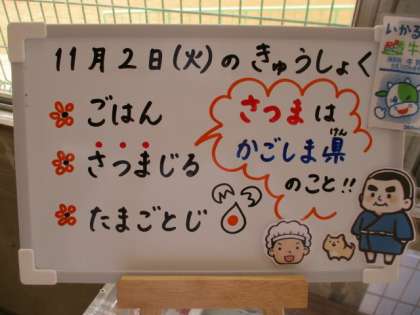 11月2日(火)のきゅうしょく
ごはん
さつまじる
たまごとじ
さつまは
かごしま県
けん
のこと!!
いかる